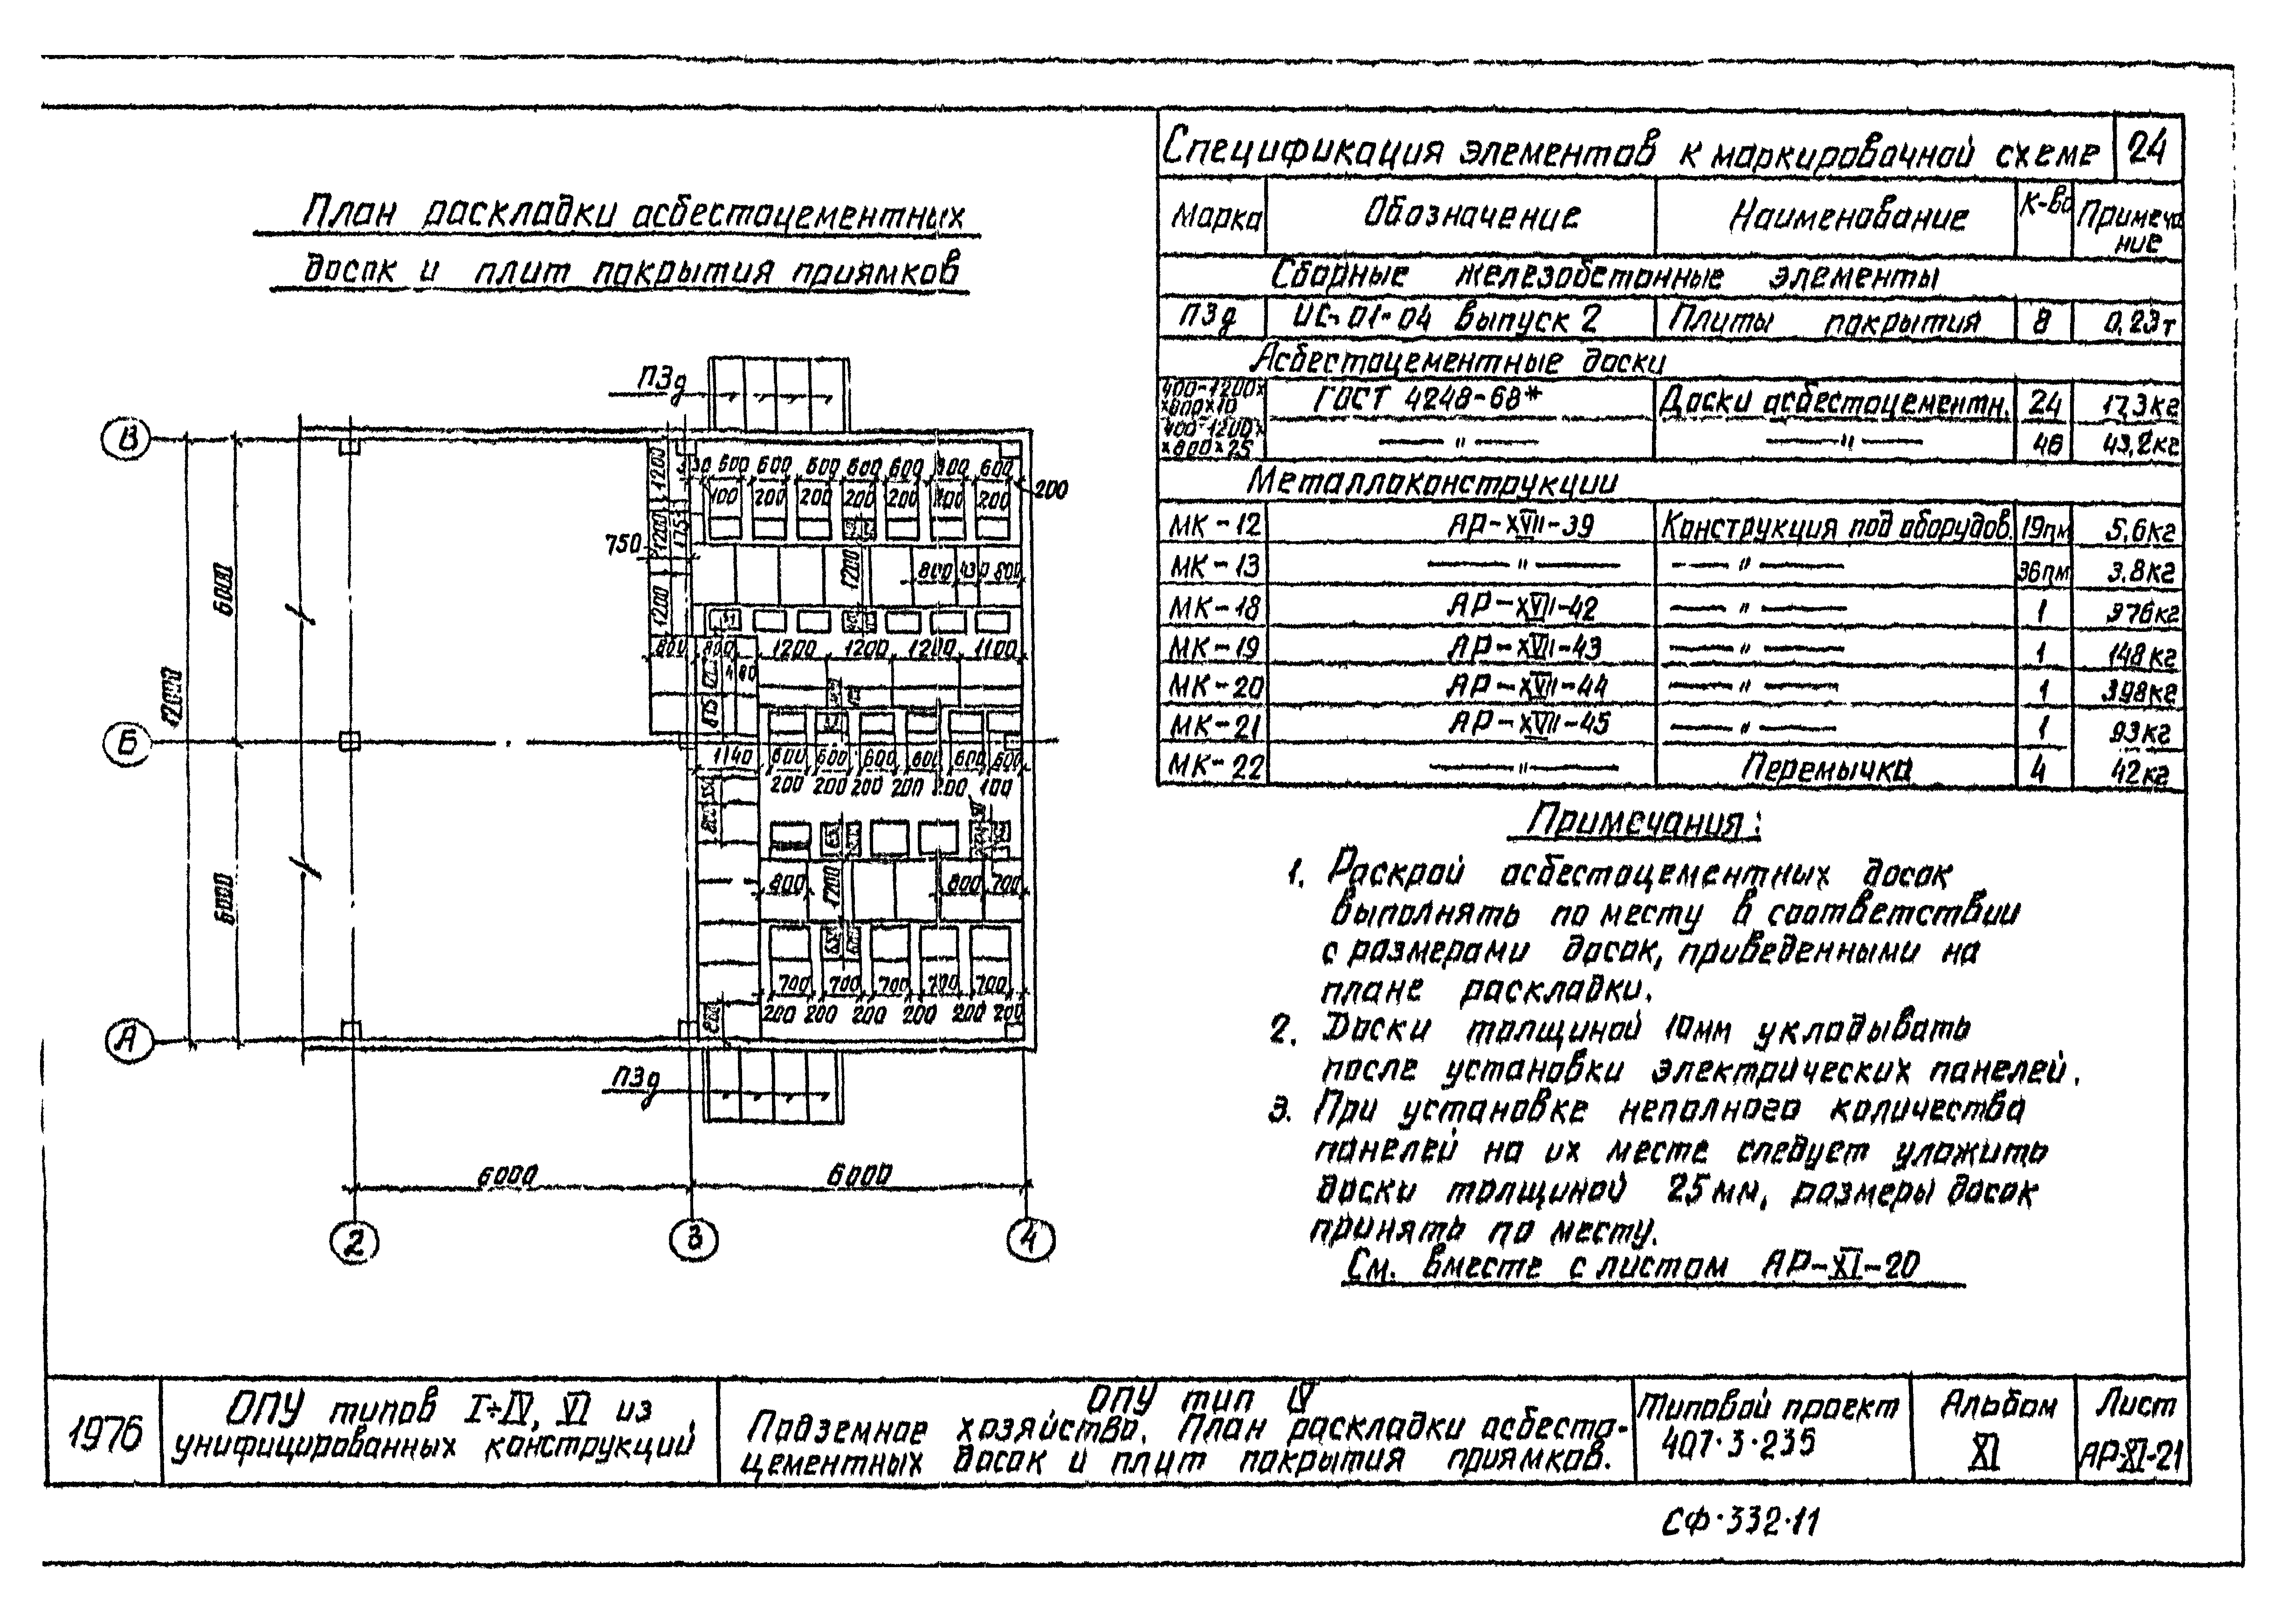 План раскладки асбестоцементных
досок и плит покрытия приямков
Спецификация элементов к маркировочной схеме 24
Марка Обозначение Наименование К-во Примеча
ние
Сборные железобетонные элементы
П3д ИС-01-04 выпуск 2 Плиты покрытия 8 0,23т
Асбестоцементные доски
400-1200×
×800×10 ГОСТ 4248-68* Доски асбестоцементн. 24 17,3кг
400-1200×
×800×25 —"— —"— 46 43,2кг
Металлоконструкции
МК-12 АР-XVII-39 Конструкция под оборудов. 19пм 5,6кг
МК-13 —"— —"— 36пм 3,8кг
МК-18 АР-XVII-42 —"— 1 376кг
МК-19 АР-XVII-43 —"— 1 148кг
МК-20 АР-XVII-44 —"— 1 398кг
МК-21 АР-XVII-45 —"— 1 93кг
МК-22 —"— Перемычка 4 42кг
Примечания:
1. Раскрой асбестоцементных досок
выполнять по месту в соответствии
с размерами досок, приведенными на
плане раскладки.
2. Доски толщиной 10мм укладывать
после установки электрических панелей.
3. При установке неполного количества
панелей на их месте следует уложить
доски толщиной 25мм, размеры досок
принять по месту.
См. вместе с листом АР-XI-20
П3д
В
600 600 600 600 600 600
200
100 200 200 200 200 200
1200
1200
175
750
1200
800 430 800
6000
1200
800 800 1200 1200 1200 1100
12000
480
875
Б
1140 600 600 600 600 600 600
200 200 200 200 200 100
800 1200 800 700
6000
700 700 700 700 700
200 200 200 200 200 200
800
А
П3д
6000 6000
2 3 4
1976
ОПУ типов I÷IV, VI из
унифицированных конструкций
ОПУ тип IV
Подземное хозяйство. План раскладки асбесто-
цементных досок и плит покрытия приямков.
Типовой проект
407·3·235
Альбом
XI
Лист
АР-XI-21
СФ·332·11